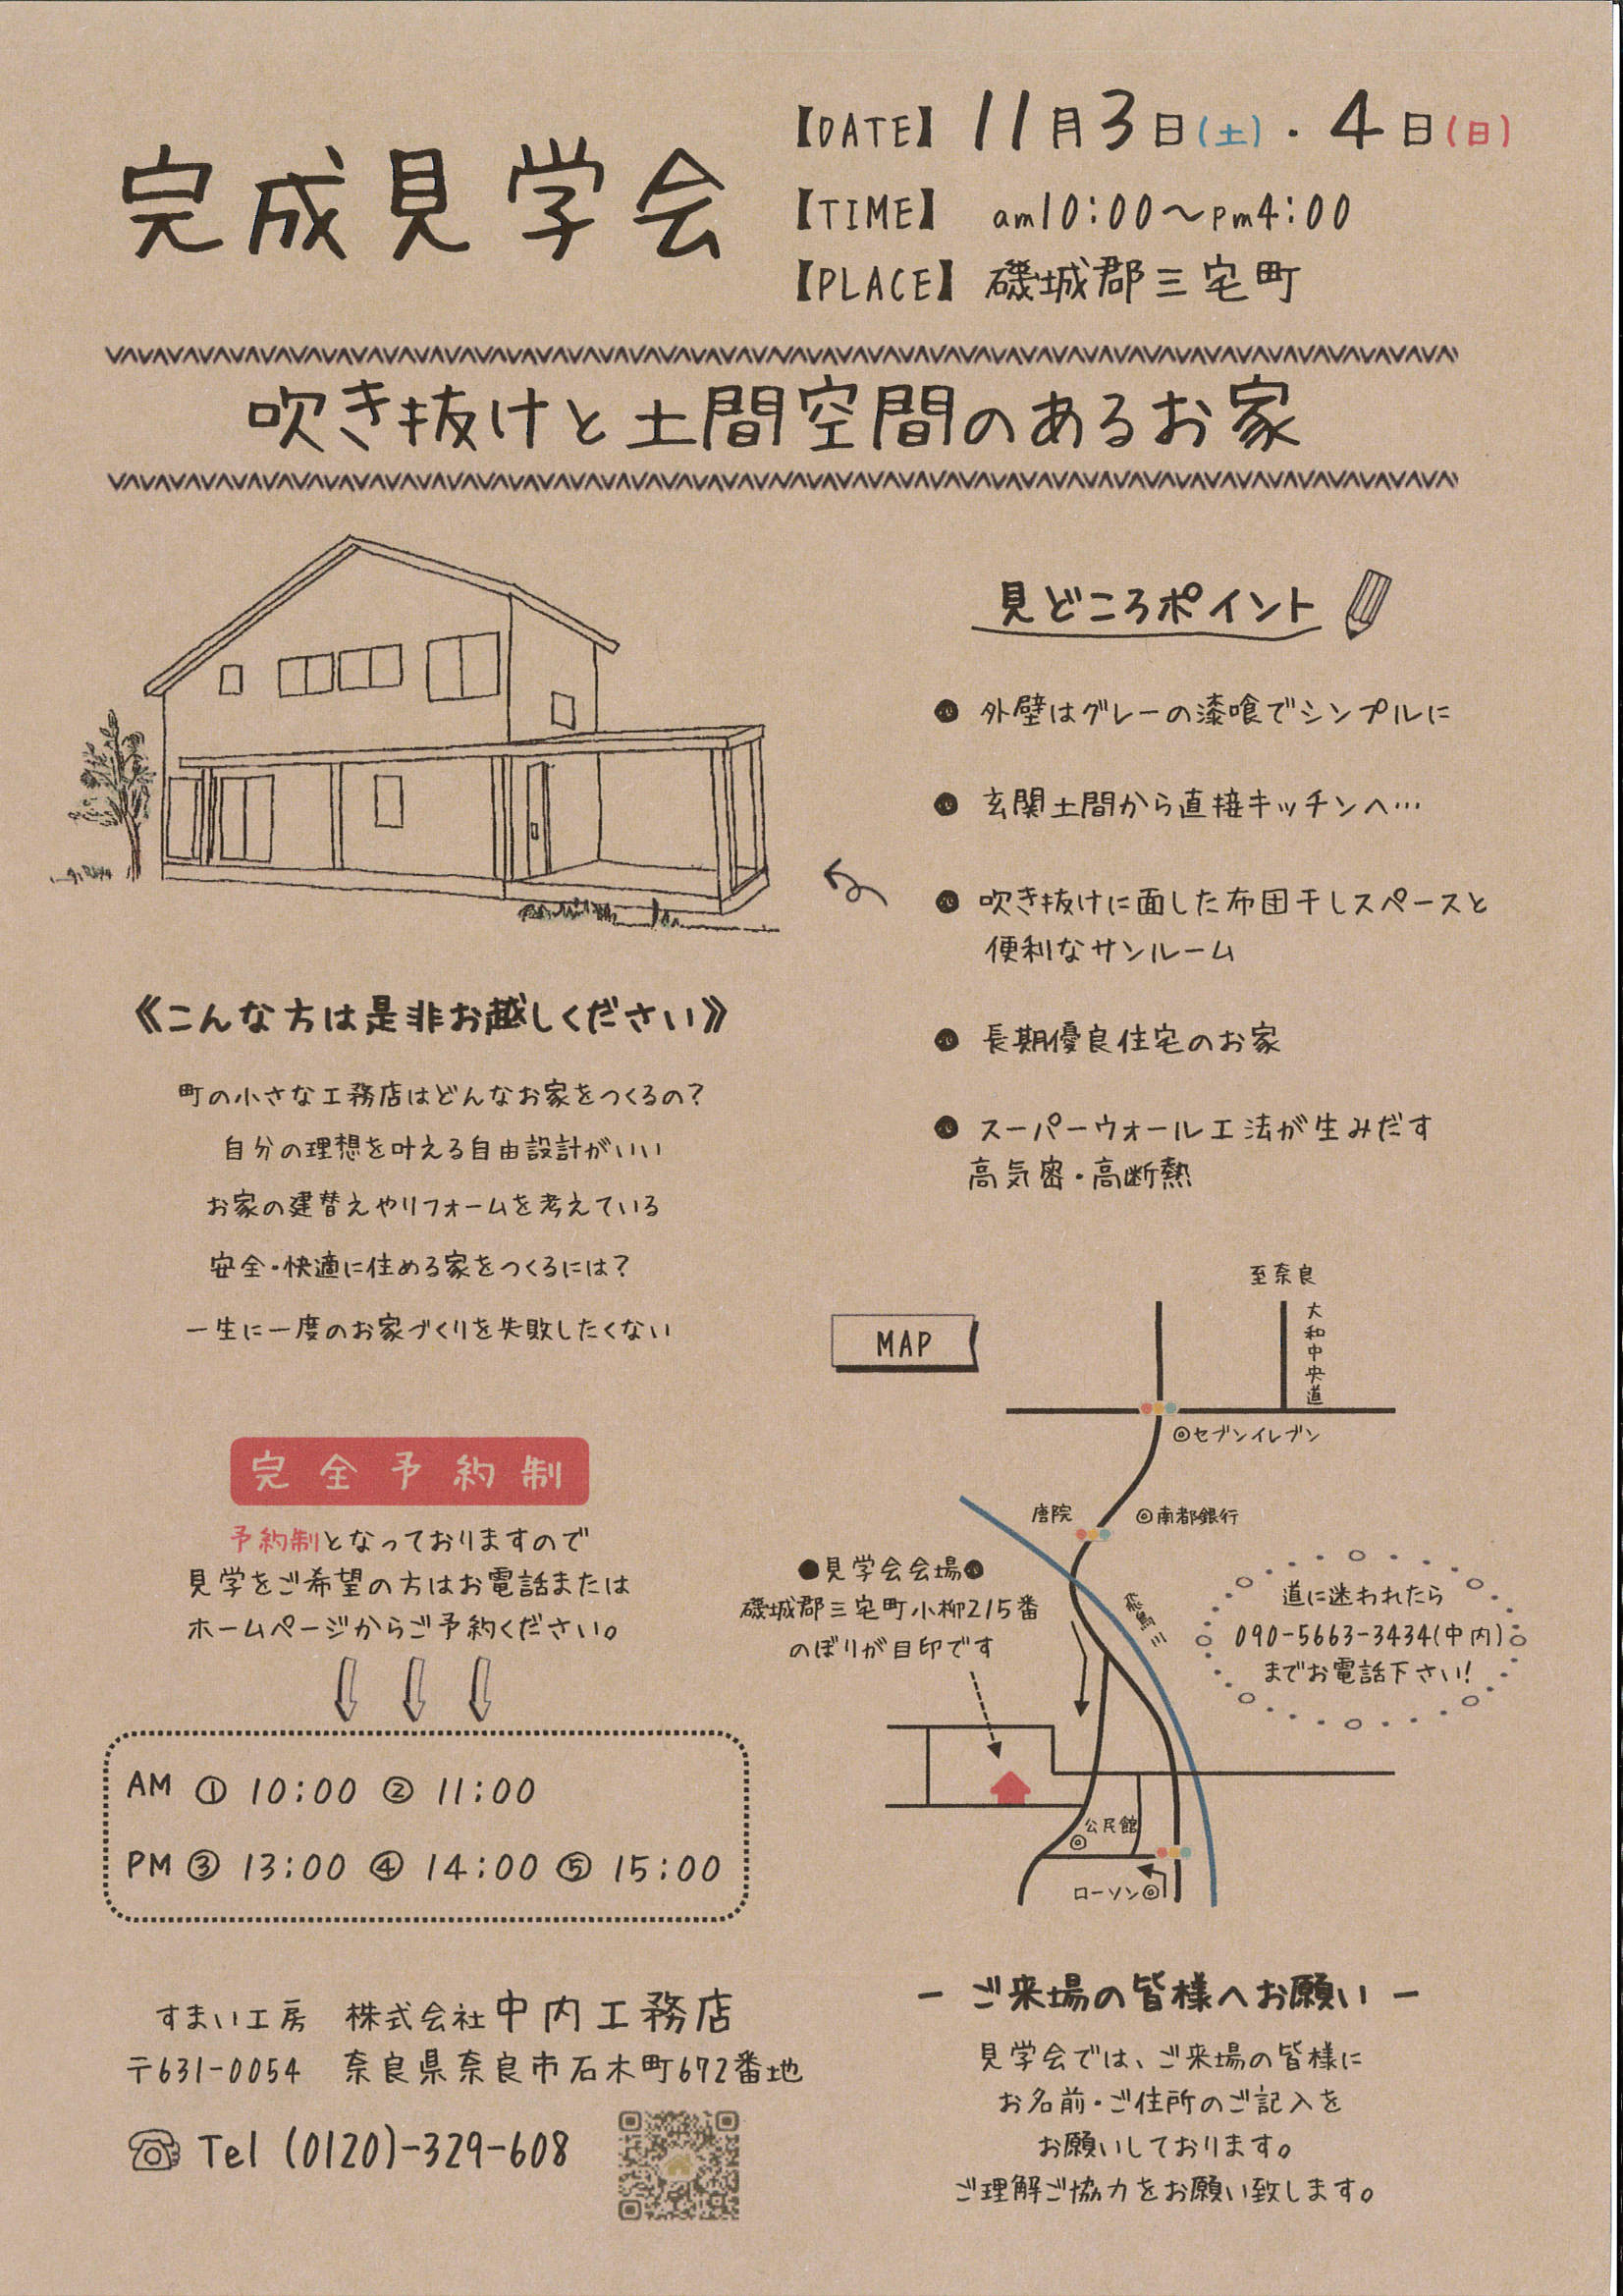 完成見学会
【DATE】 11月3日(土)・4日(日)
【TIME】 am10:00～pm4:00
【PLACE】 磯城郡三宅町
吹き抜けと土間空間のあるお家
見どころポイント
● 外壁はグレーの漆喰でシンプルに
● 玄関土間から直接キッチンへ…
● 吹き抜けに面した布団干しスペースと
便利なサンルーム
● 長期優良住宅のお家
● スーパーウォール工法が生みだす
高気密・高断熱
《こんな方は是非お越しください》
町の小さな工務店はどんなお家をつくるの？
自分の理想を叶える自由設計がいい
お家の建替えやリフォームを考えている
安全・快適に住める家をつくるには？
一生に一度のお家づくりを失敗したくない
完全予約制
予約制となっておりますので
見学をご希望の方はお電話または
ホームページからご予約ください。
AM ① 10:00 ② 11:00
PM ③ 13:00 ④ 14:00 ⑤ 15:00
MAP
至奈良
大和中央道
◎セブンイレブン
唐院
◎南都銀行
●見学会会場●
磯城郡三宅町小柳215番
のぼりが目印です
飛鳥川
道に迷われたら
090-5663-3434(中内)
までお電話下さい！
公民館
◎
ローソン◎
すまい工房 株式会社中内工務店
〒631-0054 奈良県奈良市石木町672番地
Tel (0120)-329-608
－ ご来場の皆様へお願い －
見学会では、ご来場の皆様に
お名前・ご住所のご記入を
お願いしております。
ご理解ご協力をお願い致します。